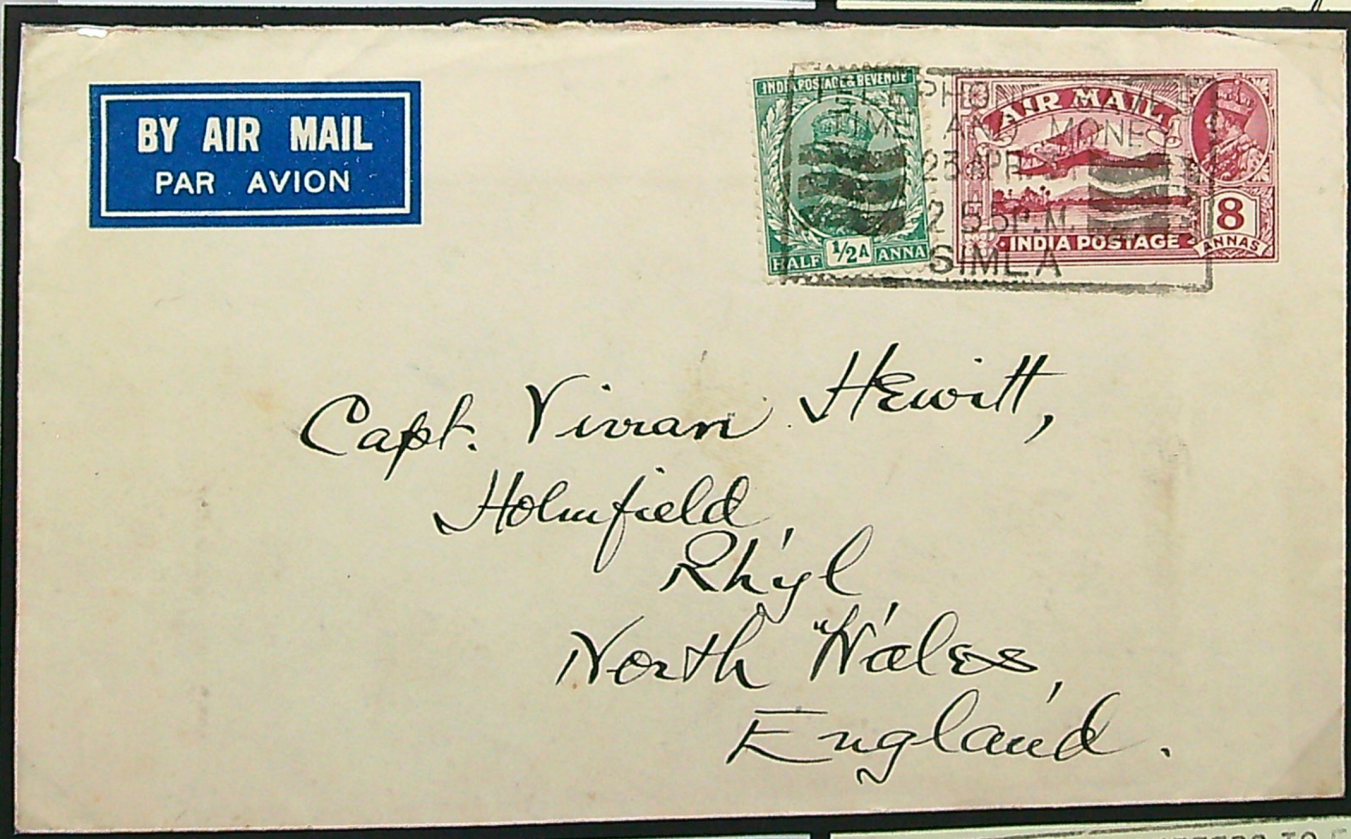 BY AIR MAIL
PAR AVION
INDIA POSTAGE & REVENUE
HALF 1/2A ANNA
AIR MAIL
8
ANNAS
INDIA POSTAGE
TIME AND MONEY
23 APR
2 55 P.M.
SIMLA
Capt. Vivian Hewitt,
Holmfield,
Rhyl
North Wales,
England.